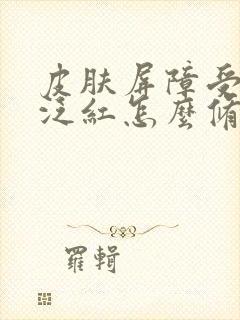 皮肤屏障受
泛紅怎麼脩
羅輯